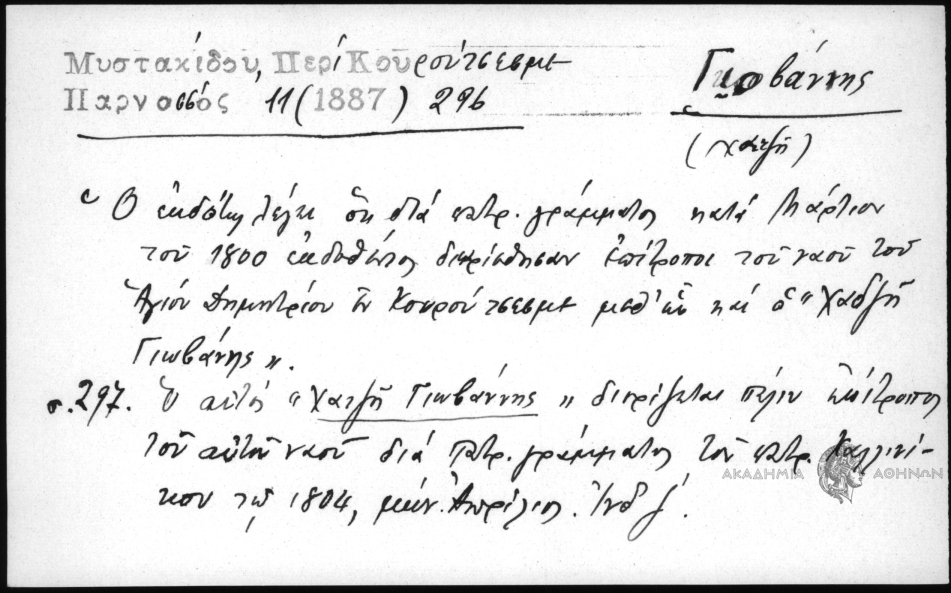 Μυστακίδου, Περί Κουρούτσεσμε
Παρνασσός 11 (1887) 296
Γιοβάννης
(χατζῆ)
Ὁ ἐκδότης λέγει ὅτι διά πατρ. γράμματος κατά Μάρτιον
τοῦ 1800 ἐκδοθέντος διωρίσθησαν ἐπίτροποι τοῦ ναοῦ τοῦ
Ἁγίου Δημητρίου ἐν Κουρούτσεσμε μεθ' ὧν καί ὁ "Χαδζῆ
Γιωβάνης".
σ. 297. Ὁ αὐτός "Χατζῆ Γιωβάννης" διορίζεται πάλιν ἐπίτροπος
τοῦ αὐτοῦ ναοῦ διά πατρ. γράμματος τοῦ πατρ. Καλλινί-
κου τῷ 1804, μην. Ἀπρίλιος. Ἰνδ ζ'.
ΑΚΑΔΗΜΙΑ ΑΘΗΝΩΝ